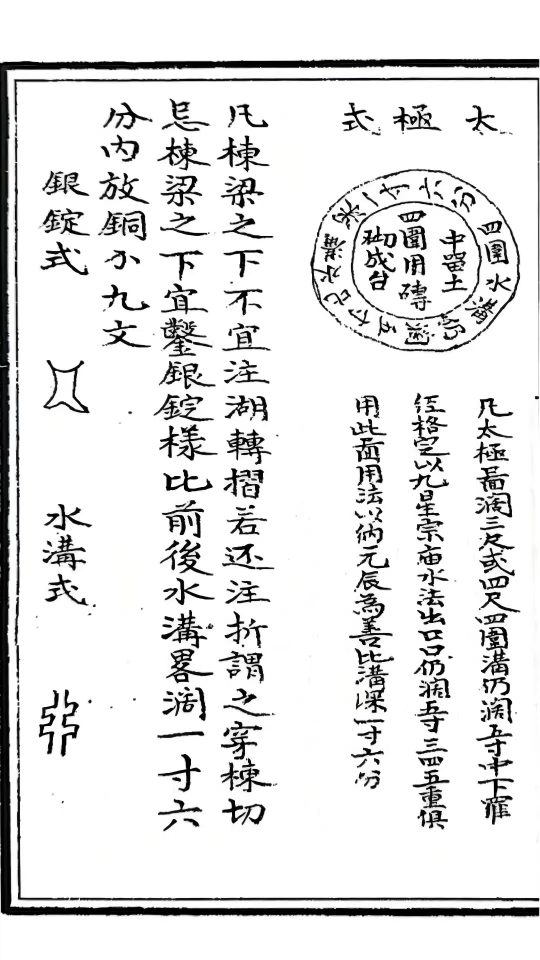 太極式
四圍水溝仍濶五寸比水溝深一寸六分
中留土
四圍用磚
砌成台
凡太極啚濶三尺或四尺四圍溝仍濶五寸中下羅
經格定以九星宗庙水法出口口仍濶五寸三四五重俱
用此啚用法以納元辰為善比溝深一寸六分
凡棟梁之下不宜注湖轉摺若还注折謂之穿棟切
忌棟梁之下宜鑿銀錠樣比前後水溝畧濶一寸六
分內放銅小九文
銀錠式
水溝式